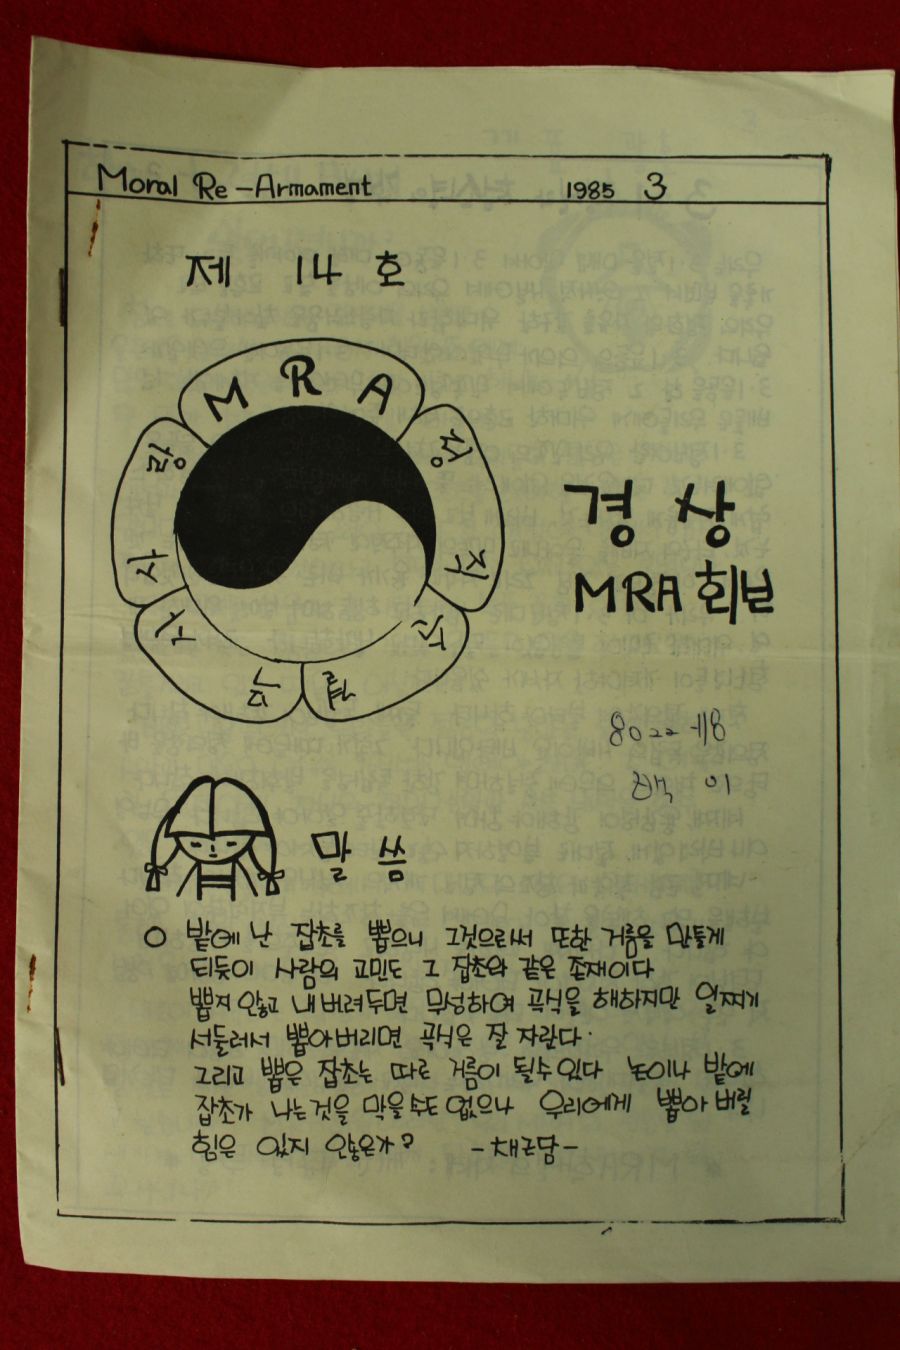 Moral Re-Armament 1985 3
제 14 호
MRA
정직
순결
무사
사랑
경상
MRA 회보
말 씀
○ 밭에 난 잡초를 뽑으니 그것으로써 또한 거름을 만들게
되듯이 사람의 고민도 그 잡초와 같은 존재이다
뽑지 않고 내버려두면 무성하여 곡식을 해하지만 일찌기
서둘러서 뽑아버리면 곡식은 잘 자란다.
그리고 뽑은 잡초는 따로 거름이 될수 있다 논이나 밭에
잡초가 나는것을 막을 수도 없으나 우리에게 뽑아 버릴
힘은 있지 않은가?  -채근담-